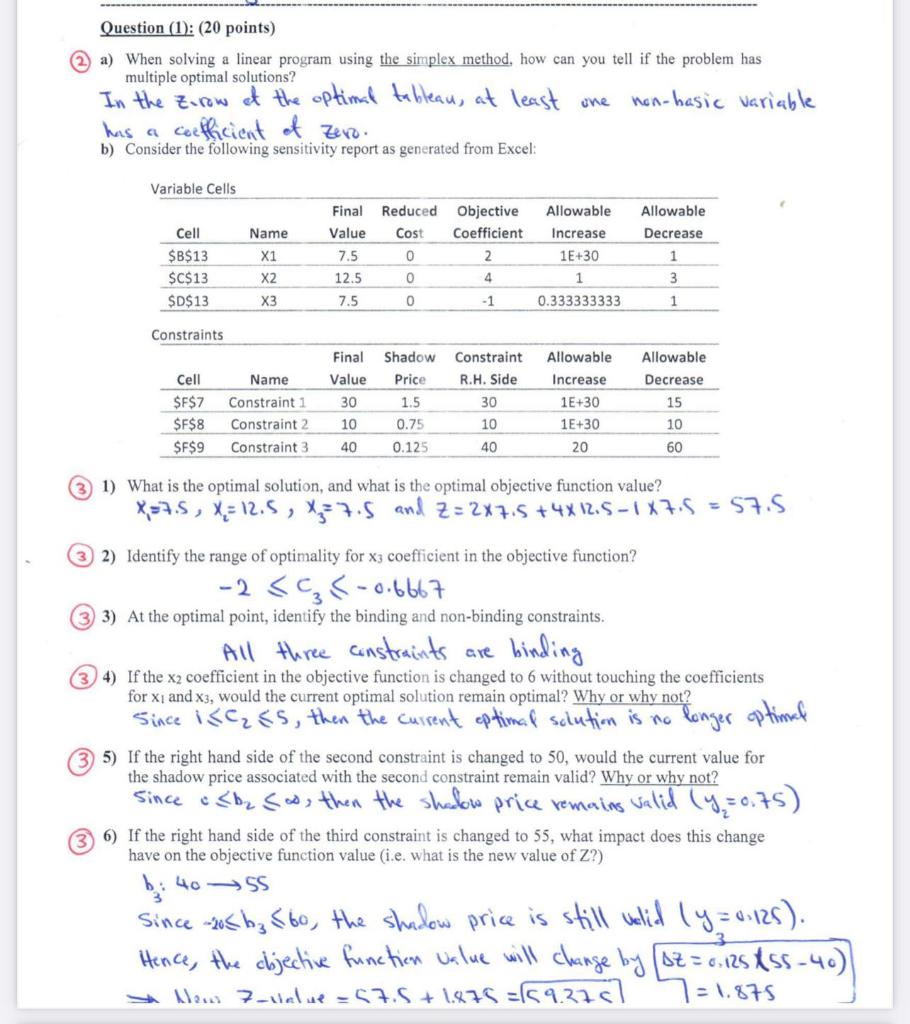 Question (1): (20 points)
② a) When solving a linear program using the simplex method, how can you tell if the problem has
multiple optimal solutions?
In the Z-row of the optimal tableau, at least one non-basic variable
has a coefficient of zero.
b) Consider the following sensitivity report as generated from Excel:
Variable Cells
Final Reduced Objective Allowable Allowable
Cell Name Value Cost Coefficient Increase Decrease
$B$13 X1 7.5 0 2 1E+30 1
$C$13 X2 12.5 0 4 1 3
$D$13 X3 7.5 0 -1 0.333333333 1
Constraints
Final Shadow Constraint Allowable Allowable
Cell Name Value Price R.H. Side Increase Decrease
$F$7 Constraint 1 30 1.5 30 1E+30 15
$F$8 Constraint 2 10 0.75 10 1E+30 10
$F$9 Constraint 3 40 0.125 40 20 60
③ 1) What is the optimal solution, and what is the optimal objective function value?
X₁=7.5, X₂=12.5, X₃=7.5 and Z=2×7.5+4×12.5-1×7.5 = 57.5
③ 2) Identify the range of optimality for x₃ coefficient in the objective function?
-2 ≤ C₃ ≤ -0.6667
③ 3) At the optimal point, identify the binding and non-binding constraints.
All three constraints are binding
③ 4) If the x₂ coefficient in the objective function is changed to 6 without touching the coefficients
for x₁ and x₃, would the current optimal solution remain optimal? Why or why not?
Since 1≤C₂≤5, then the current optimal solution is no longer optimal
③ 5) If the right hand side of the second constraint is changed to 50, would the current value for
the shadow price associated with the second constraint remain valid? Why or why not?
Since 0≤b₂≤∞, then the shadow price remains valid (y₂=0.75)
③ 6) If the right hand side of the third constraint is changed to 55, what impact does this change
have on the objective function value (i.e. what is the new value of Z?)
b₃: 40 → 55
Since -20≤b₃≤60, the shadow price is still valid (y₃=0.125).
Hence, the objective function value will change by ΔZ = 0.125 × (55-40)
= 1.875
⇒ New Z-value = 57.5 + 1.875 = 59.375